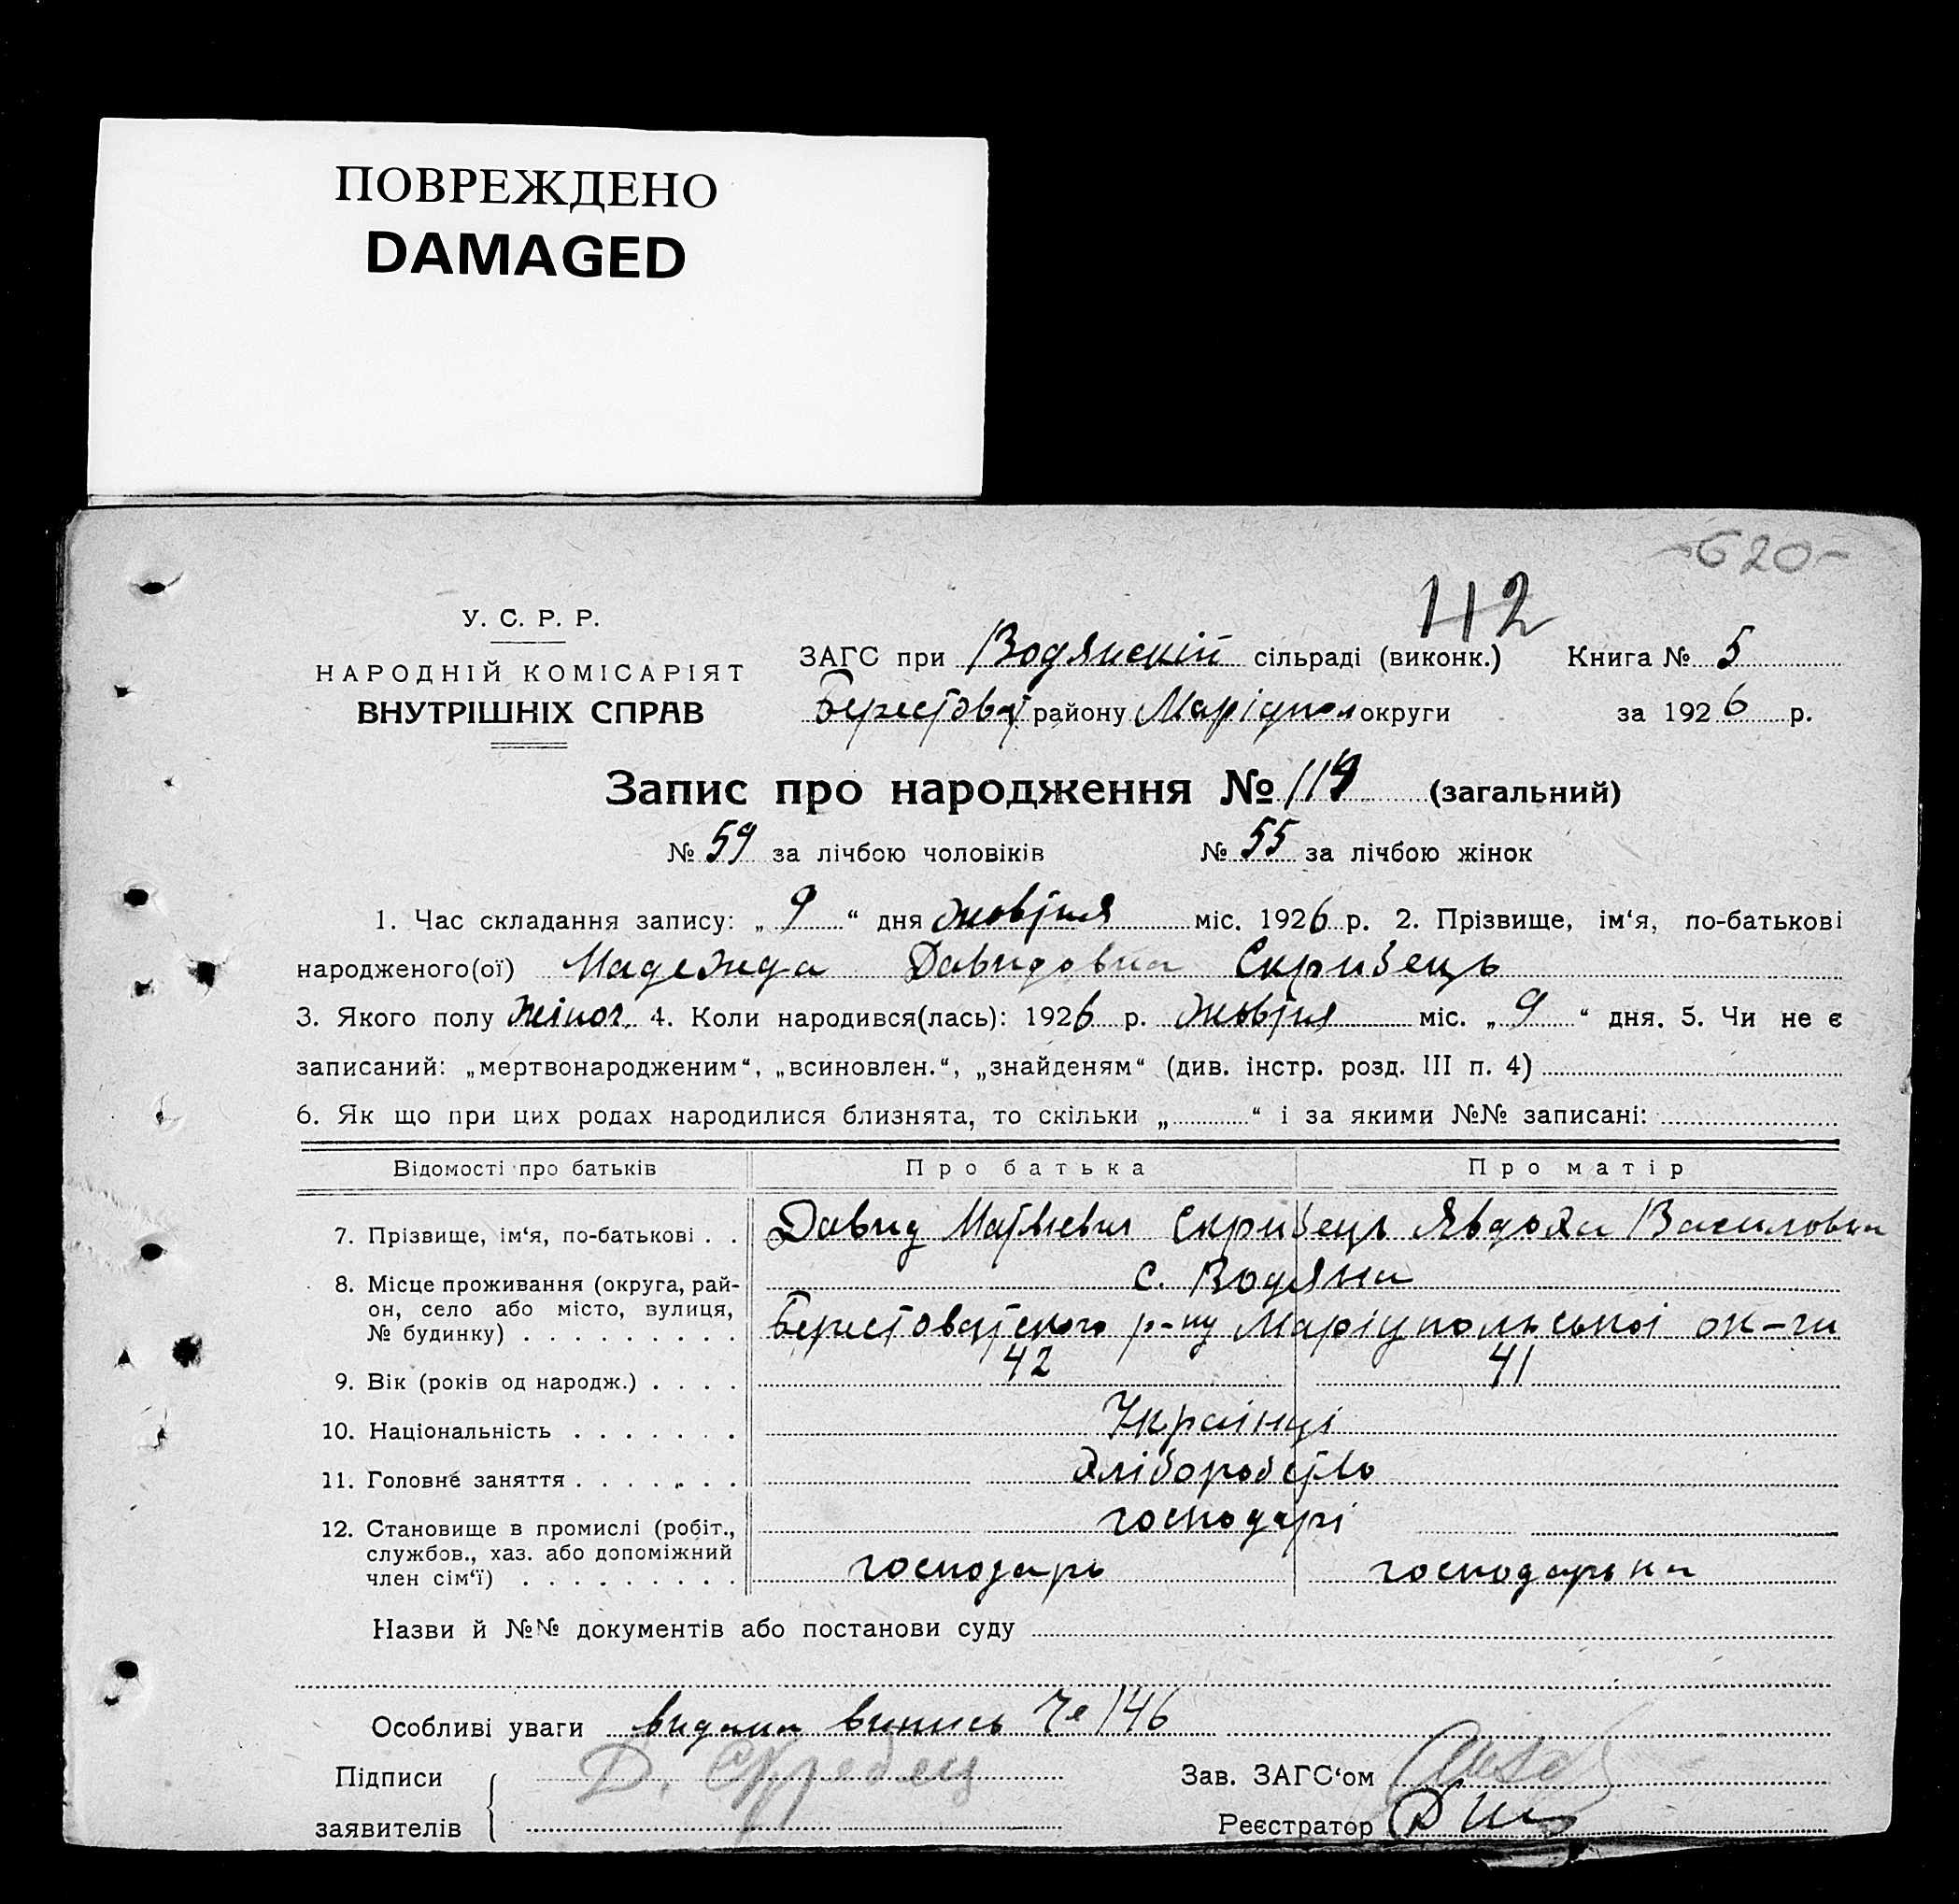 ПОВРЕЖДЕНО
DAMAGED
-620-
112
У. С. Р. Р.
НАРОДНІЙ КОМІСАРІЯТ
ВНУТРІШНІХ СПРАВ
ЗАГС при Водянскій сільраді (виконк.) Книга № 5
Берестоват району Маріупол округи за 1926 р.
Запис про народження № 119 (загальний)
№ 59 за лічбою чоловіків № 55 за лічбою жінок
1. Час складання запису: „ 9 “ дня жовтня міс. 1926 р. 2. Прізвище, ім‘я, по-батькові
народженого(ої) Надежда Давидовна Скрибець
3. Якого полу жіноч. 4. Коли народився(лась): 1926 р. жовтня міс. „ 9 “ дня. 5. Чи не є
записаний: „мертвонародженим“, „всиновлен.“, „знайденям“ (див. інстр. розд. III п. 4)
6. Як що при цих родах народилися близнята, то скільки „ “ і за якими №№ записані:
Відомості про батьків Про батька Про матір
7. Прізвище, ім‘я, по-батькові . . Давид Скрибець Явдоха Василовна
8. Місце проживання (округа, рай-
он, село або місто, вулиця,
№ будинку) . . . . . . . . .
с. Водяна
Берестоватского р-ну Маріупольської ок-ги
9. Вік (років од народж.) . . . . 42 41
10. Національність . . . . . . . Українці
11. Головне заняття . . . . . . . Хліборобство
12. Становище в промислі (робіт.,
службов., хаз. або допоміжний
член сім‘ї) . . . . . . . . .
господарі
господарь господарька
Назви й №№ документів або постанови суду
Особливі уваги видана випись № 146
Підписи
заявителів
Д. Скребец
Зав. ЗАГС‘ом
Реєстратор